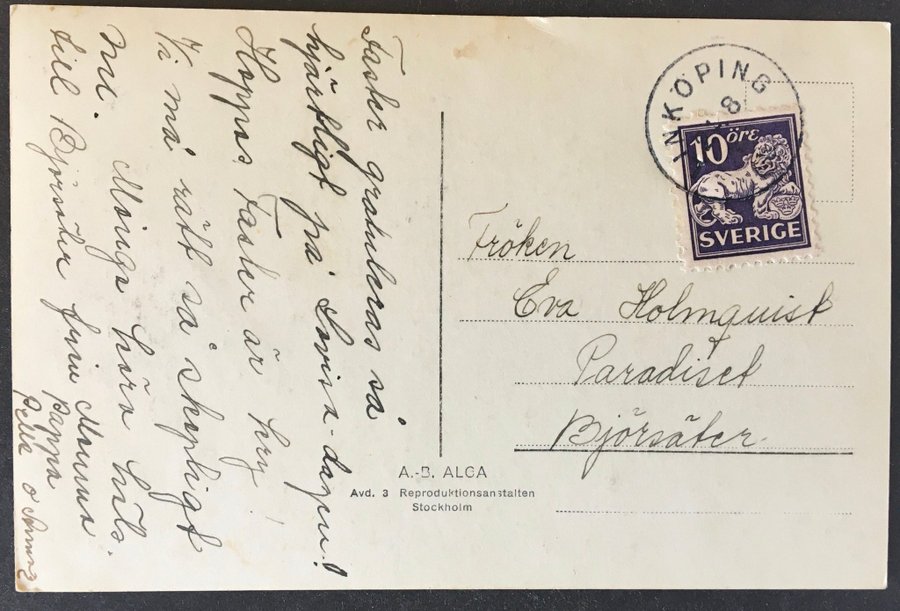 Faster gratuleras så
hjärtligt på Lovisa-dagen!
Hoppas Faster är kry!
Vi må rätt så skapligt
nu. Många kära häls.
till Björsäter från Mamma
Pappa
Pelle o
LINKÖPING
8
10 öre
SVERIGE
Fröken
Eva Holmquist
Paradiset
Björsäter
A.-B. ALGA
Avd. 3 Reproduktionsanstalten
Stockholm